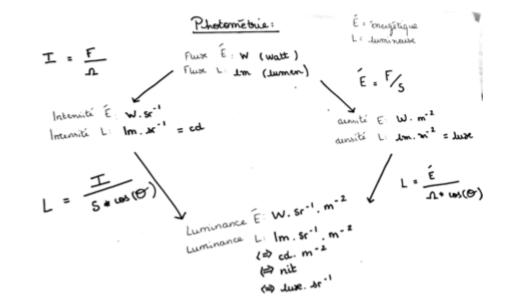 Photométrie:
É = énergétique
L: lumineuse
I = F/Ω
Flux É: W (watt)
Flux L: lm (lumen)
É = F/S
Intensité É: W.sr⁻¹
Intensité L: lm.sr⁻¹ = cd
É: W.m⁻²
L: lm.m⁻² = luxe
L = I/S*cos(Θ)
L = É/Ω*cos(Θ)
Luminance É: W.sr⁻¹.m⁻²
Luminance L: lm.sr⁻¹.m⁻²
(=) cd.m⁻²
(=) nit
(=) luxe.sr⁻¹